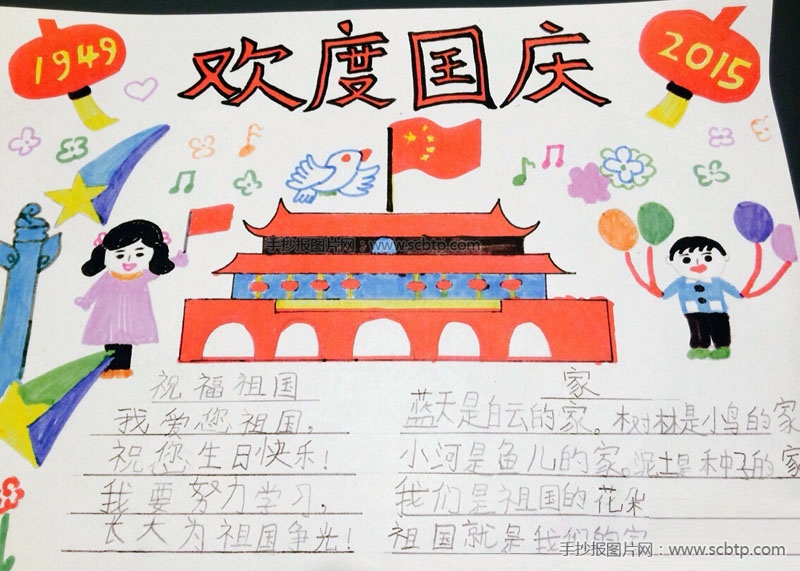 1949
欢度国庆
2015
手抄报图片网:www.scbtp.com
祝福祖国
我爱您祖国,
祝您生日快乐!
我要努力学习,
长大为祖国争光!
家
蓝天是白云的家。树林是小鸟的家
小河是鱼儿的家。泥土是种子的家
我们是祖国的花朵
祖国就是我们的家
手抄报图片网:www.scbtp.com